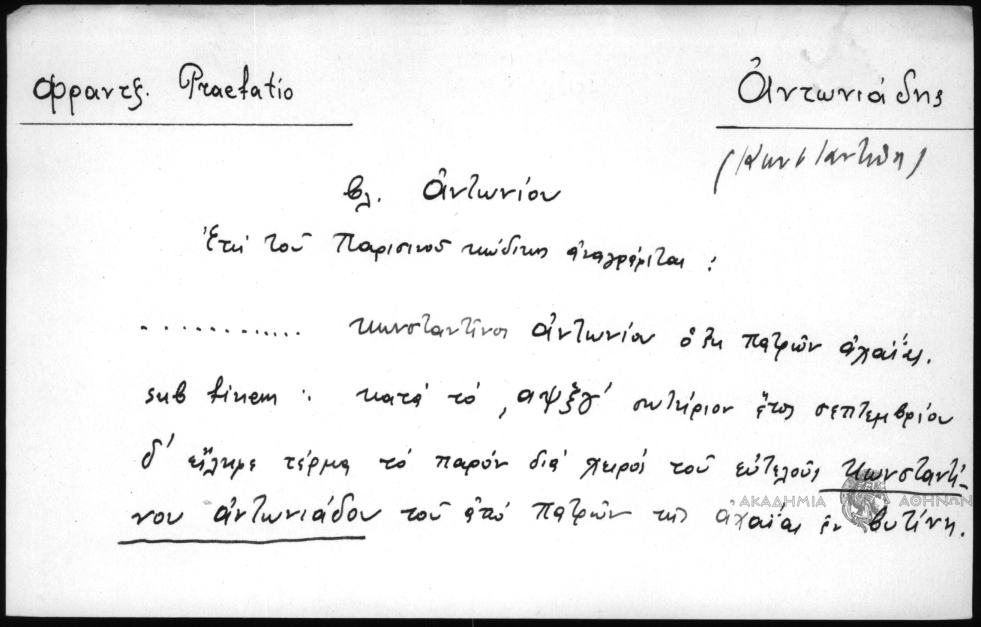 Φραντζ. Praefatio
Ἀντωνιάδης
(Κωνσταντῖνος)
βλ. Ἀντωνίου
Ἐπὶ τοῦ Παρισινοῦ κώδικος ἀναγράφεται :
............ Κωνσταντῖνος Ἀντωνίου ὁ ἐκ Πατρῶν Ἀχαΐας.
sub finem : κατὰ τὸ ͵αψξγ′ σωτήριον ἔτος σεπτεμβρίου
δ′ εἴληφε τέρμα τὸ παρὸν διὰ χειρὸς τοῦ εὐτελοῦς Κωνσταντί-
νου Ἀντωνιάδου τοῦ ἀπὸ Πατρῶν τῆς Ἀχαΐας ἐν Βυτίνῃ.
ΑΚΑΔΗΜΙΑ ΑΘΗΝΩΝ